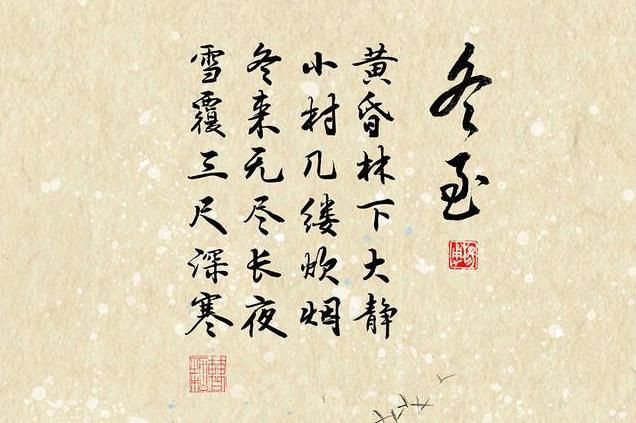 冬至
黄昏林下大静
小村几缕炊烟
冬来无尽长夜
雪覆三尺深寒